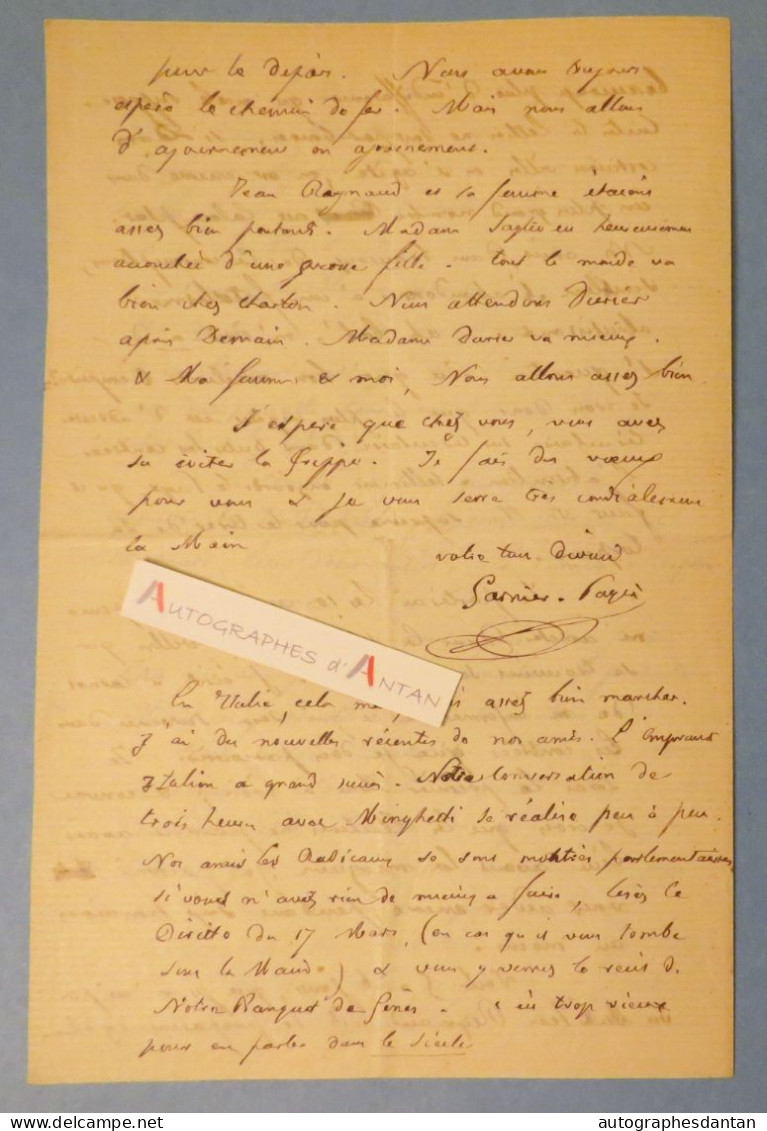 pour le départ. Nous avons toujours
espéré le chemin de fer. Mais nous allons
d'ajournement en ajournement.
Jean Raynaud et sa femme étaient
assez bien portants. Madame Saglio est heureusement
accouchée d'une grosse fille. tout le monde va
bien chez Charton. Nous attendons Durier
après Demain. Madame Durier va mieux.
& Ma femme & moi, Nous allons assez bien
J'espère que chez vous, vous avez
su éviter la Grippe. Je fais des vœux
pour vous & je vous serre très cordialement
la Main
votre tout dévoué
Garnier-Pagès
AUTOGRAPHES d'ANTAN
En Italie, cela assez bien marcher.
J'ai des nouvelles récentes de nos amis. L'Emprunt
Italien a grand succès. Notre Conversation de
trois heures avec Minghetti se réalise peu à peu.
Nos amis les Radicaux se sont montrés parlementaires,
si vous n'avez rien de mieux à faire, lisez le
Diritto du 17 Mars, (en cas qu'il vous tombe
sous la Main) & vous y verrez le récit de
Notre Banquet de Gênes. c'est trop vieux
pour en parler dans le siècle
autographesdantan